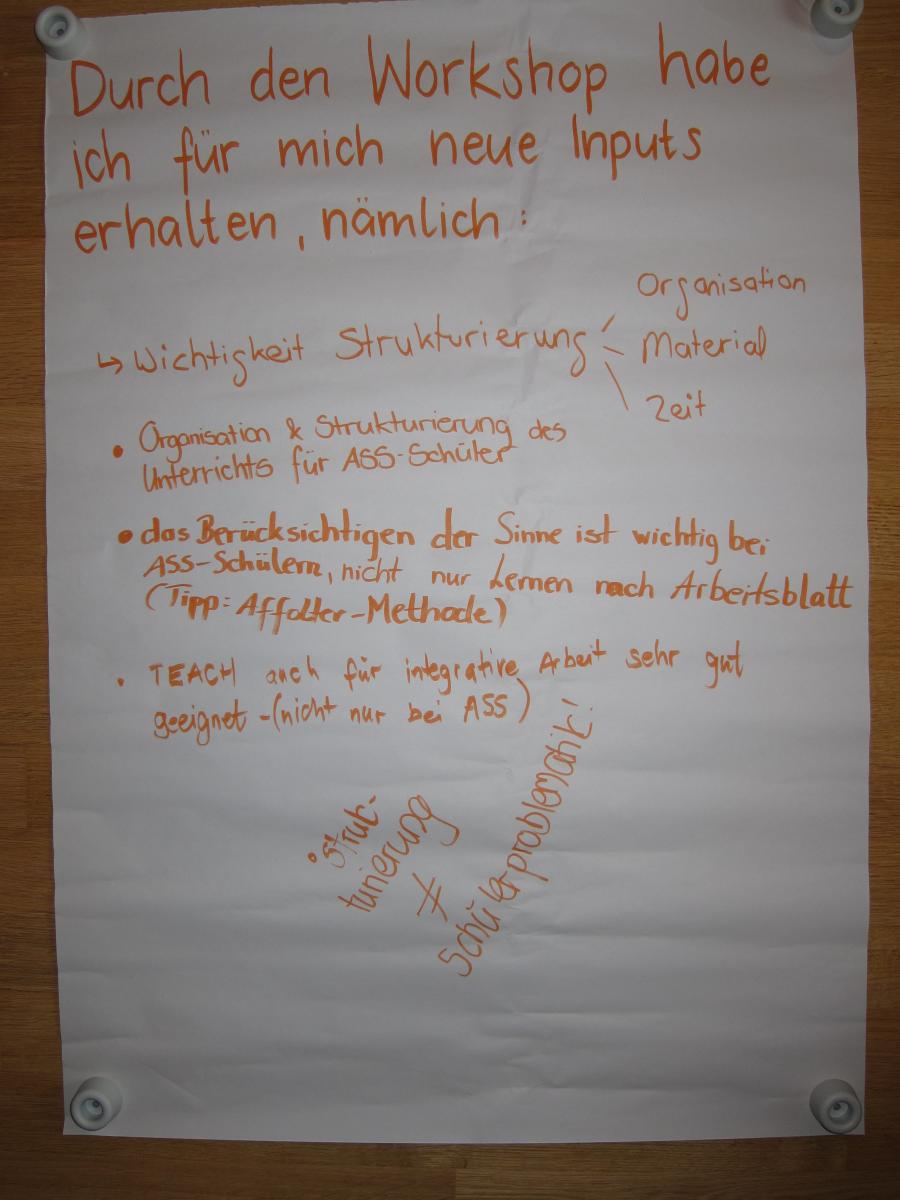 Durch den Workshop habe
ich für mich neue Inputs
erhalten, nämlich:
Organisation
↳ Wichtigkeit Strukturierung Material
Zeit
• Organisation & Strukturierung des
Unterrichts für ASS-Schüler
• das Berücksichtigen der Sinne ist wichtig bei
ASS-Schülern, nicht nur Lernen nach Arbeitsblatt
(Tipp: Affolter-Methode)
• TEACH auch für integrative Arbeit sehr gut
geeignet - (nicht nur bei ASS)
• Struk-
turierung
≠
Schülerproblematik!